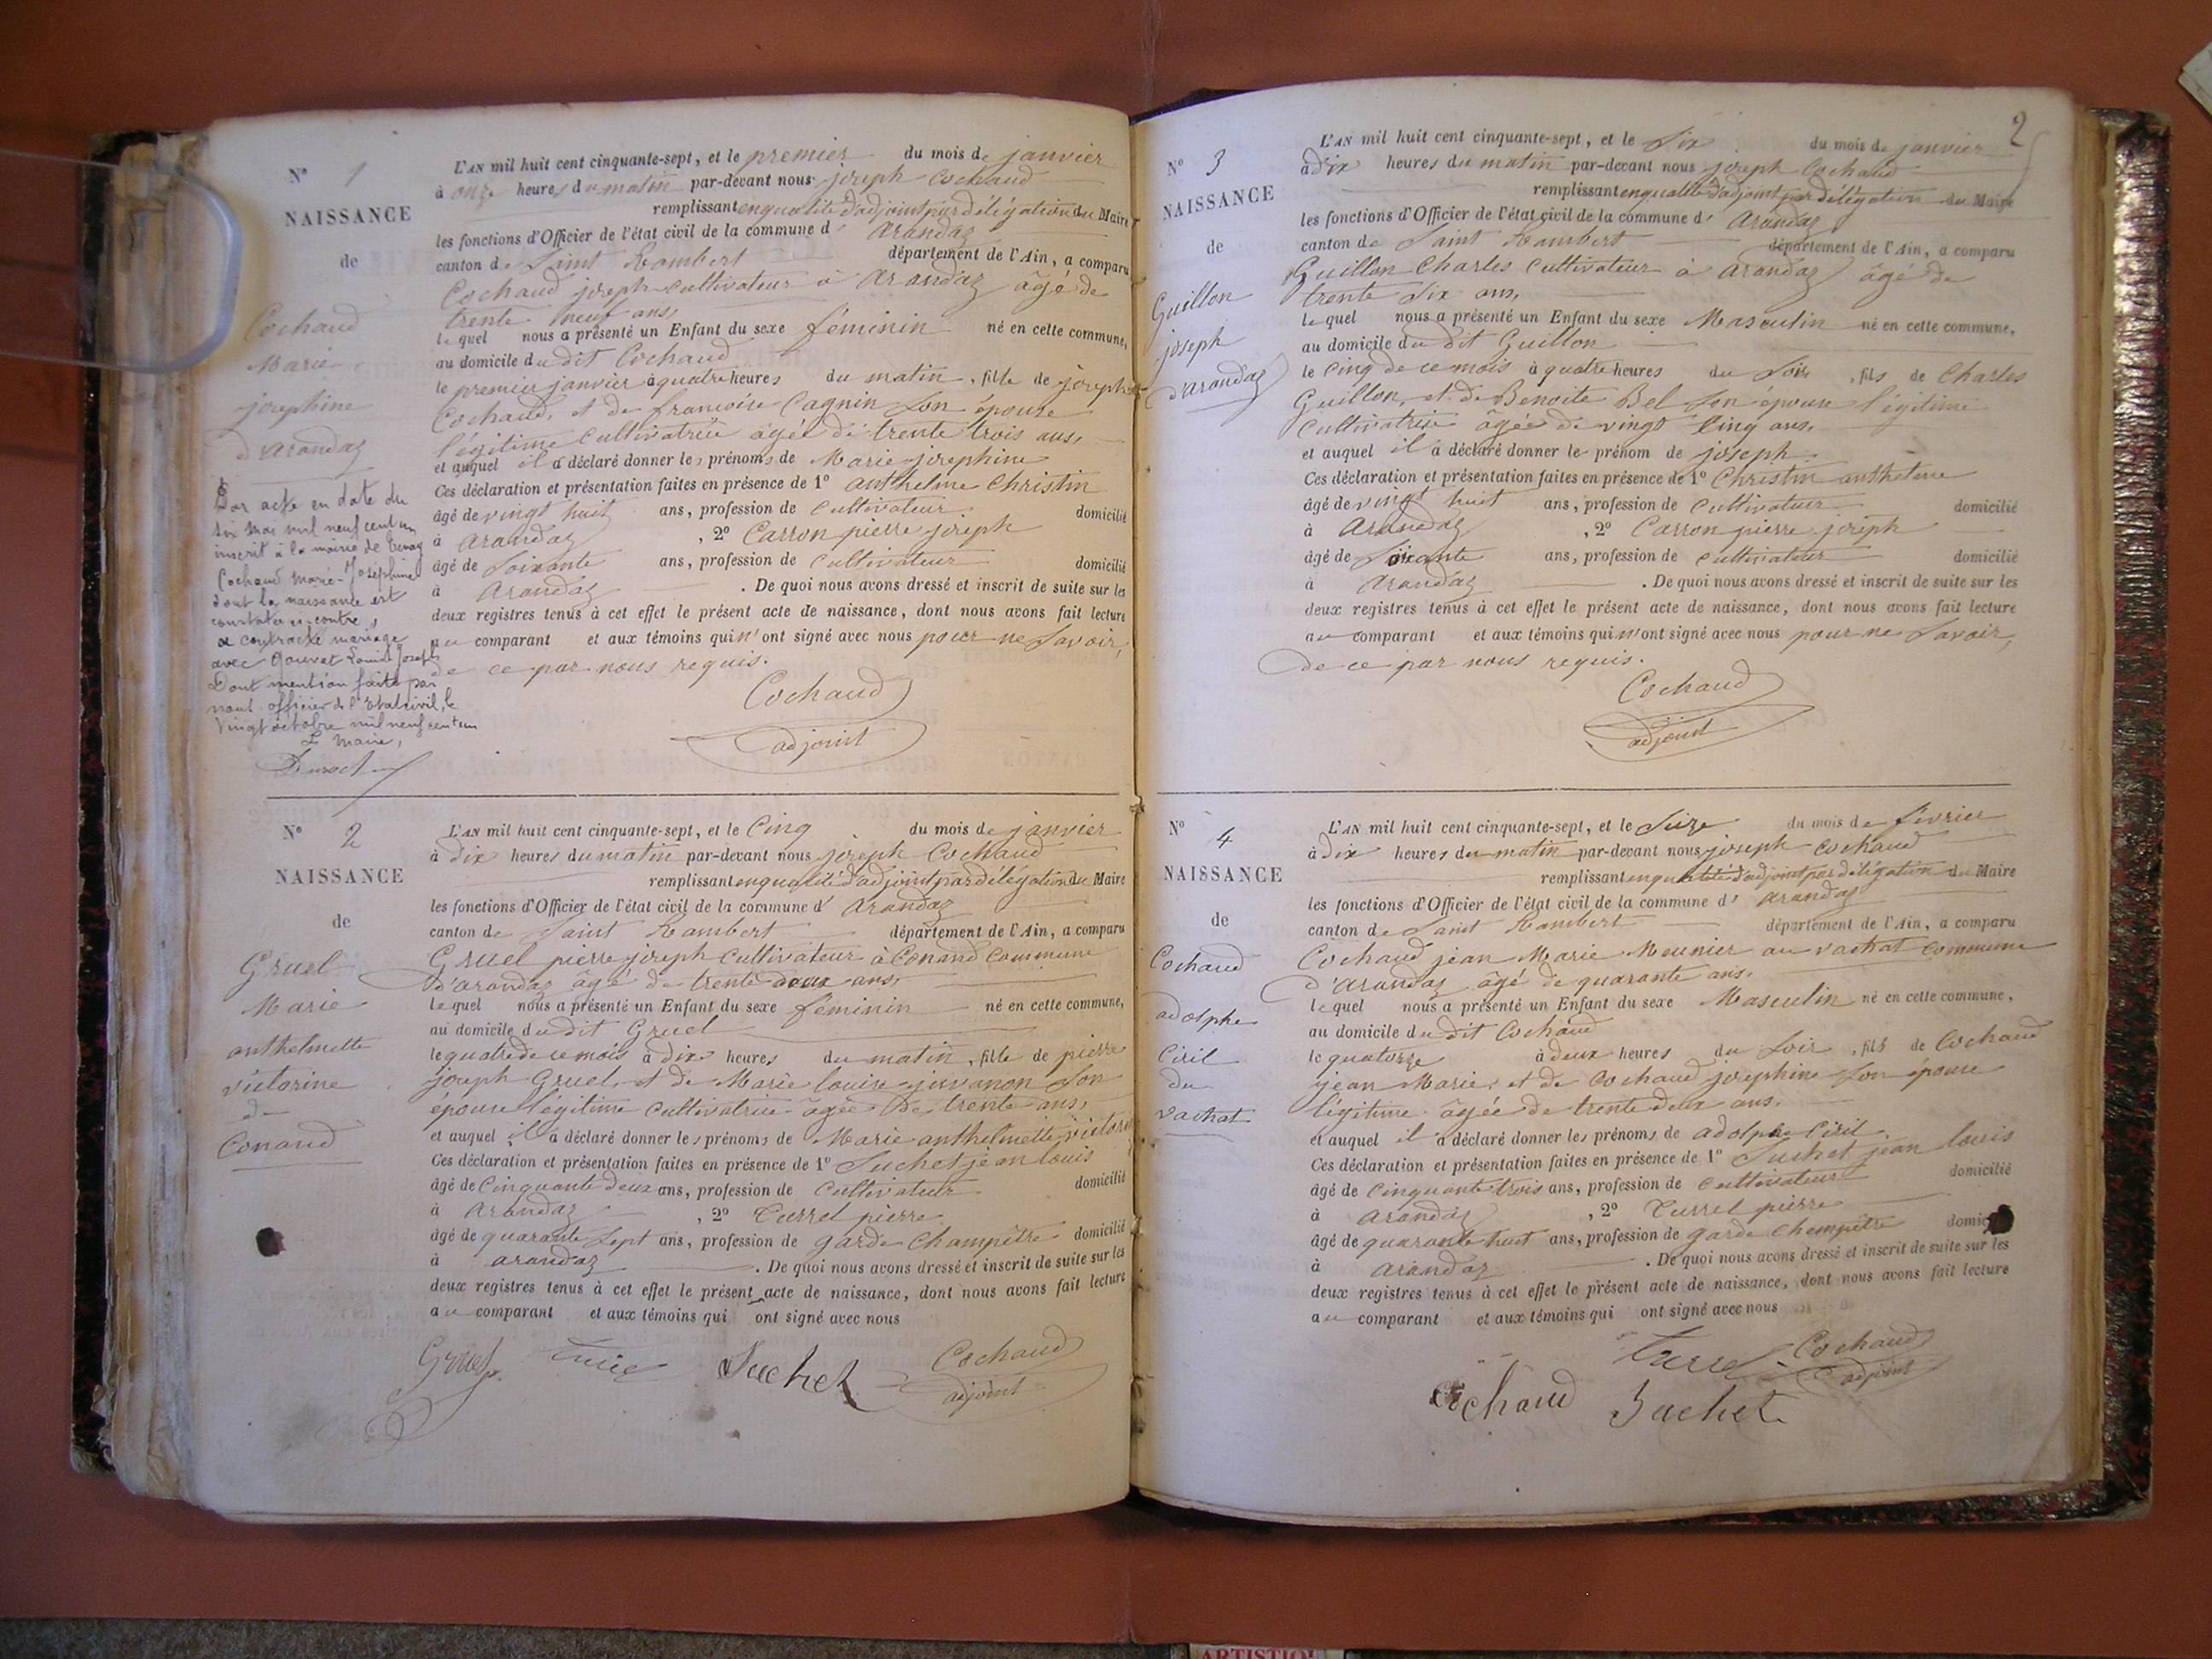 N° 1
NAISSANCE
de
Cochaud
Marie
josephine
d'arandaz
Par acte en date du
six mai mil neuf cent un
inscrit à la mairie de
Cochaud Marie-Joséphine
dont la naissance est
constatée ci-contre,
a contracté mariage
avec Gouvet Louis Joseph
Dont mention faite par
nous officier de l'Etat civil, le
vingt octobre mil neuf cent un
Le Maire,
L'AN mil huit cent cinquante-sept, et le premier du mois de janvier
à onze heures du matin par-devant nous joseph Cochaud
remplissant en qualité d'adjoint par délégation du Maire
les fonctions d'Officier de l'état civil de la commune d' Arandaz
canton de Saint Rambert département de l'Ain, a comparu
Cochaud joseph cultivateur à Arandaz âgé de
trente neuf ans,
lequel nous a présenté un Enfant du sexe féminin né en cette commune,
au domicile du dit Cochaud
le premier janvier à quatre heures du matin, fille de joseph
Cochaud, et de francoise Cagnin son épouse
légitime Cultivatrice âgée de trente trois ans,
et auquel il a déclaré donner les prénoms de Marie josephine
Ces déclaration et présentation faites en présence de 1° anthelme Christin
âgé de vingt huit ans, profession de Cultivateur domicilié
à Arandaz, 2° Carron pierre joseph
âgé de Soixante ans, profession de Cultivateur domicilié
à Arandaz. De quoi nous avons dressé et inscrit de suite sur les
deux registres tenus à cet effet le présent acte de naissance, dont nous avons fait lecture
au comparant et aux témoins qui n'ont signé avec nous pour ne savoir,
de ce par nous requis.
Cochaud
adjoint
N° 2
NAISSANCE
de
Gruel
Marie
anthelmette
victorine
de
Conand
L'AN mil huit cent cinquante-sept, et le Cinq du mois de janvier
à dix heures du matin par-devant nous joseph Cochaud
remplissant en qualité d'adjoint par délégation du Maire
les fonctions d'Officier de l'état civil de la commune d' Arandaz
canton de Saint Rambert département de l'Ain, a comparu
Gruel pierre joseph Cultivateur à Conand Commune
d'arandaz âgé de trente deux ans,
lequel nous a présenté un Enfant du sexe féminin né en cette commune,
au domicile du dit Gruel
le quatre de ce mois à dix heures du matin, fille de pierre
joseph Gruel, et de Marie louise juvanon Son
épouse légitime cultivatrice âgée de trente ans,
et auquel il a déclaré donner les prénoms de Marie anthelmette victorine
Ces déclaration et présentation faites en présence de 1° Suchet jean louis
âgé de Cinquante deux ans, profession de Cultivateur domicilié
à Arandaz, 2° Turrel pierre
âgé de quarante Sept ans, profession de garde Champêtre domicilié
à arandaz. De quoi nous avons dressé et inscrit de suite sur les
deux registres tenus à cet effet le présent acte de naissance, dont nous avons fait lecture
au comparant et aux témoins qui ont signé avec nous
Gruel Suchet Cochaud
adjoint
2
N° 3
NAISSANCE
de
Guillon
joseph
d'arandaz
L'AN mil huit cent cinquante-sept, et le Six du mois de janvier
à dix heures du matin par-devant nous joseph Cochaud
remplissant en qualité d'adjoint par délégation du Maire
les fonctions d'Officier de l'état civil de la commune d' Arandaz
canton de Saint Rambert département de l'Ain, a comparu
Guillon Charles Cultivateur à Arandaz âgé de
trente Six ans,
lequel nous a présenté un Enfant du sexe Masculin né en cette commune,
au domicile du dit Guillon
le Cinq de ce mois à quatre heures du Soir, fils de Charles
Guillon, et de Benoite Bel Son épouse légitime
Cultivatrice âgée de vingt Cinq ans,
et auquel il a déclaré donner le prénom de joseph
Ces déclaration et présentation faites en présence de 1° Christin anthelme
âgé de vingt huit ans, profession de Cultivateur domicilié
à Arandaz, 2° Carron pierre joseph
âgé de Soixante ans, profession de Cultivateur domicilié
à Arandaz. De quoi nous avons dressé et inscrit de suite sur les
deux registres tenus à cet effet le présent acte de naissance, dont nous avons fait lecture
au comparant et aux témoins qui n'ont signé avec nous pour ne Savoir,
de ce par nous requis.
Cochaud
adjoint
N° 4
NAISSANCE
de
Cochaud
adolphe
Ciril
du
vachat
L'AN mil huit cent cinquante-sept, et le Seize du mois de février
à dix heures du matin par-devant nous joseph Cochaud
remplissant en qualité d'adjoint par délégation du Maire
les fonctions d'Officier de l'état civil de la commune d' Arandaz
canton de Saint Rambert département de l'Ain, a comparu
Cochaud jean Marie Meunier au vachat Commune
d'Arandaz âgé de quarante ans,
lequel nous a présenté un Enfant du sexe Masculin né en cette commune,
au domicile du dit Cochaud
le quatorze à deux heures du Soir, fils de Cochaud
jean Marie, et de Cochaud josephine Son épouse
légitime âgée de trente deux ans.
et auquel il a déclaré donner les prénoms de adolphe Ciril
Ces déclaration et présentation faites en présence de 1° Suchet jean louis
âgé de Cinquante trois ans, profession de Cultivateur domicilié
à Arandaz, 2° Turrel pierre
âgé de quarante huit ans, profession de garde Champêtre domic
à Arandaz. De quoi nous avons dressé et inscrit de suite sur les
deux registres tenus à cet effet le présent acte de naissance, dont nous avons fait lecture
au comparant et aux témoins qui ont signé avec nous
Turrel Cochaud
adjoint
Cochaud Suchet